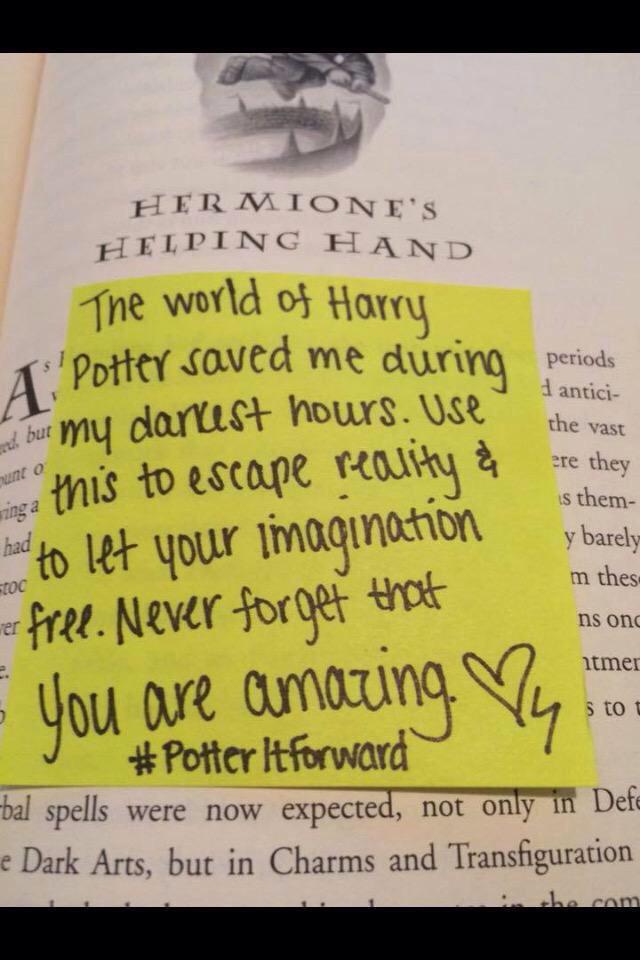 HERMIONE'S
HELPING HAND
The world of Harry
Potter saved me during
my darkest hours. Use
this to escape reality &
to let your imagination
free. Never forget that
you are amazing.
#PotterItforward
As
periods
antici-
but
the vast
ere they
ing a
s them-
had
y barely
m thes
ns onc
tmen
s to t
bal spells were now expected, not only in Defe
e Dark Arts, but in Charms and Transfiguration
in the com